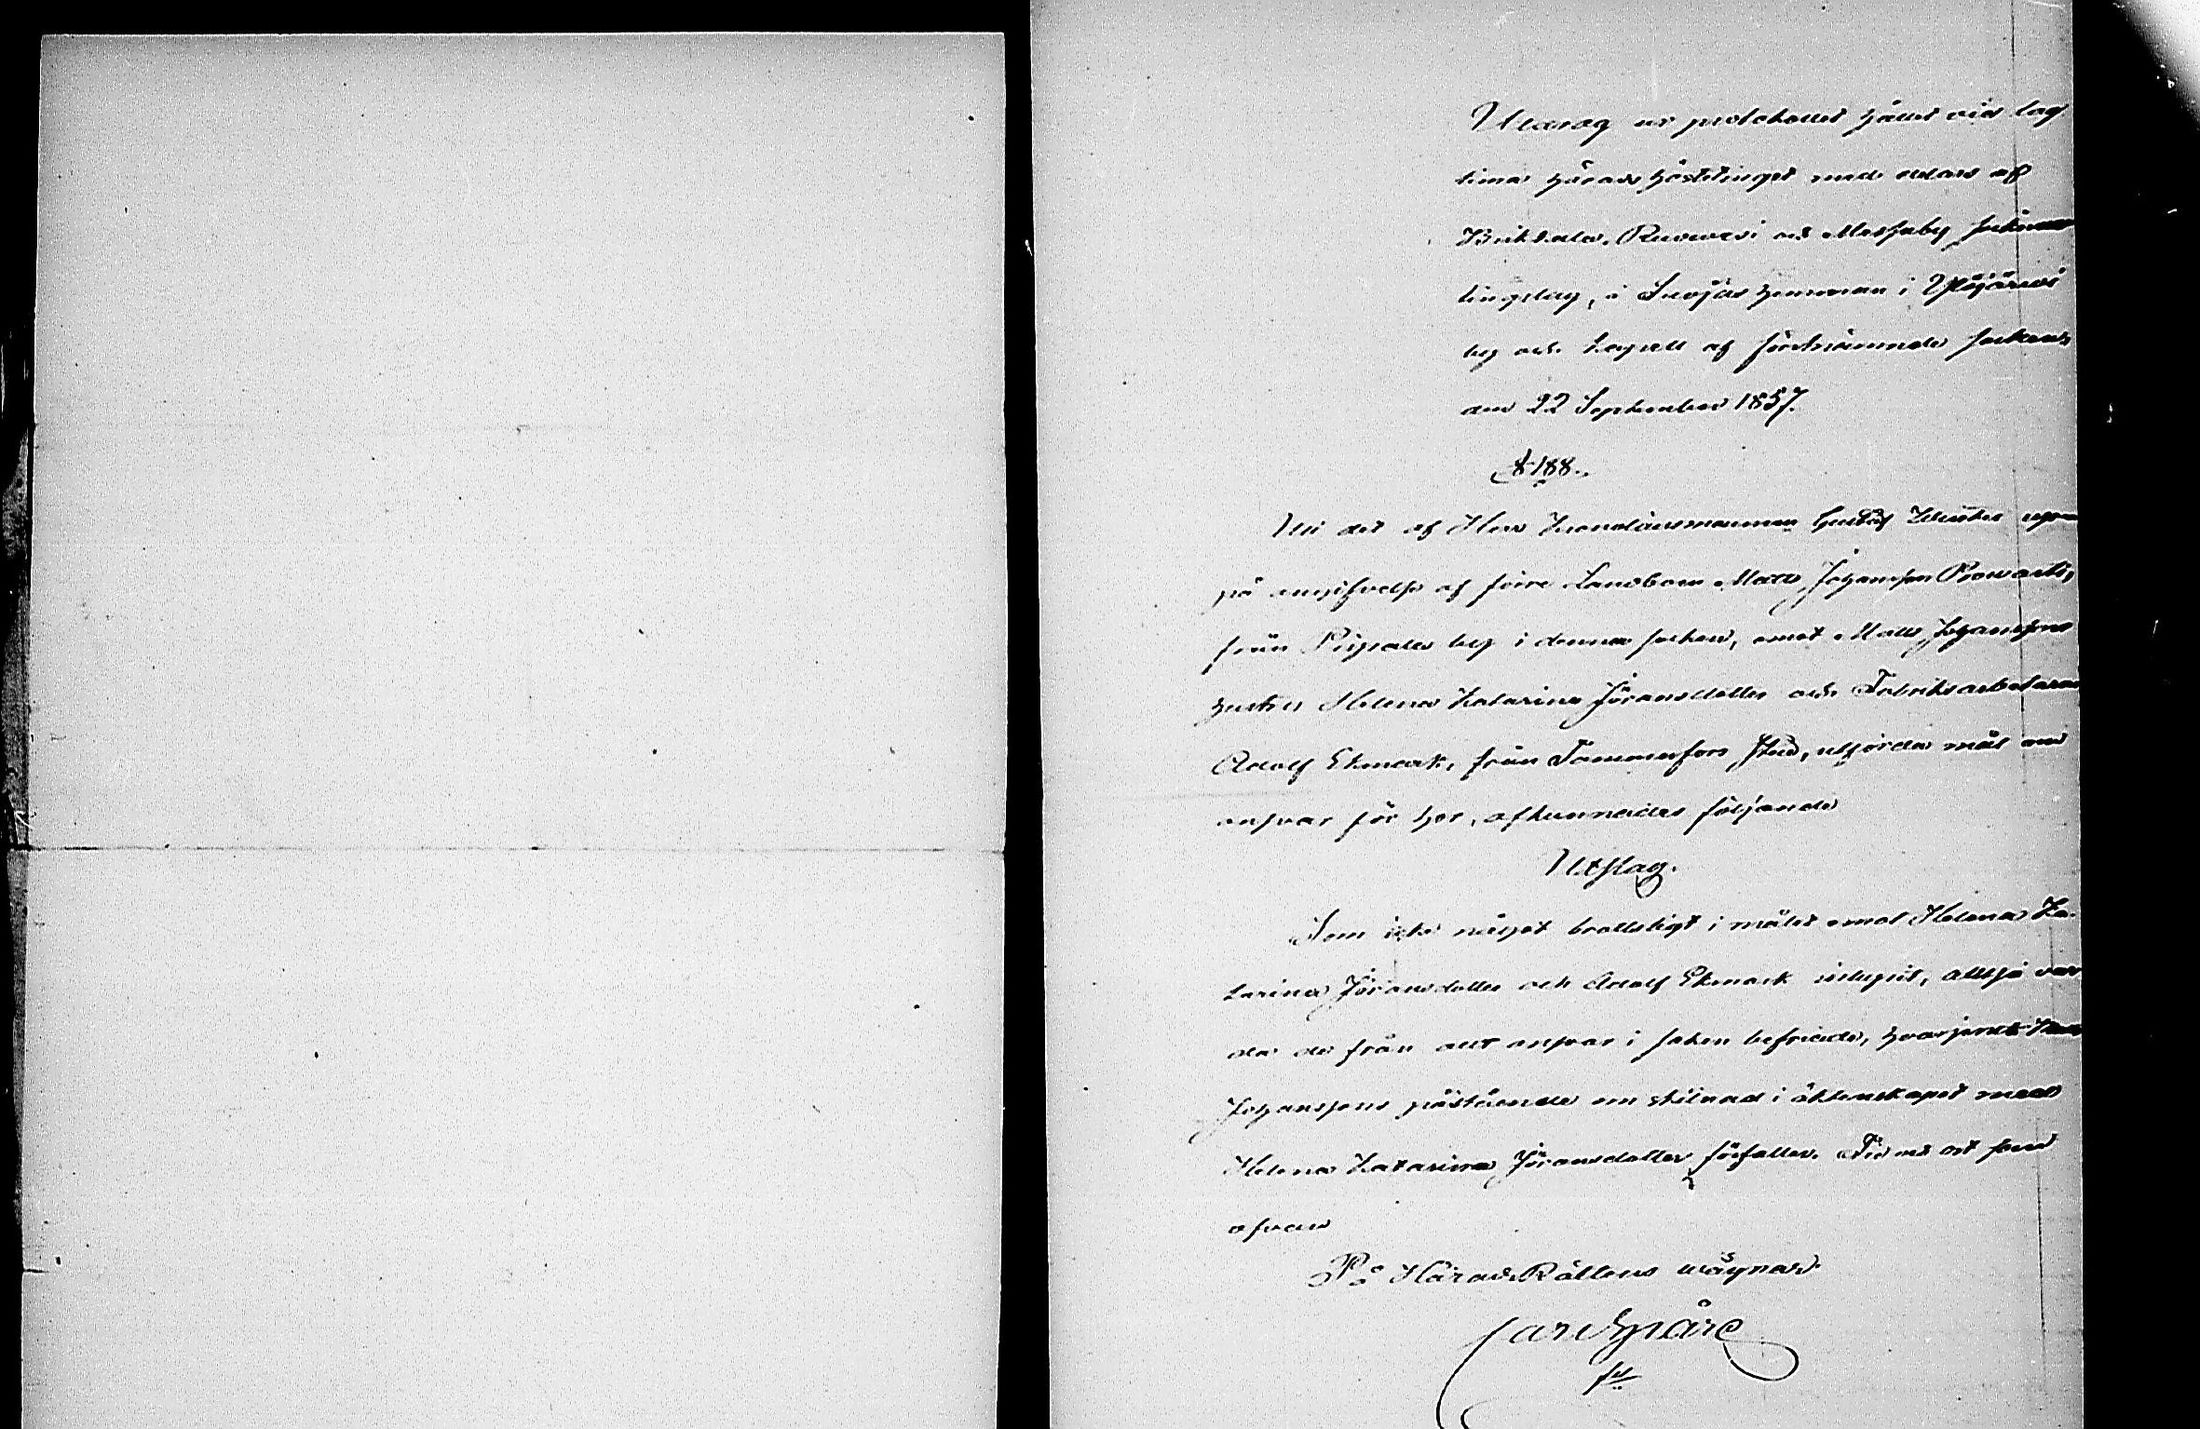 Utdrag ur protokollet hållet vid lag
tima Härads hösttinget med delar af
Birkkala, Ruovesi och Messuby socknars
tingslag, å Hemman i Ylöjärvi
by och Kapell af förstnämnde socken
den 22 September 1857.
§ 188.
Uti det af Herr Kronolänsmannen Gustaf uppå
på angifvelse af förre Landboen Matts Johansson
från by i denna socken, emot Matts Johanssons
hustru Helena Katarina Jöransdotter och Fabriksarbetaren
Adolf Ekmark, från Tammerfors stad, utförda mål om
ansvar för hor, afkunnades följande
Utslag.
Som icke något brottsligt i målet emot Helena Ka-
tarina Jöransdotter och Adolf Ekmark inlupit, alltså var
da de från allt ansvar i saken befriade, hvarjemte
Johanssons påstående om skilnad i äktenskapet med
Helena Katarina Jöransdotter förfaller. Tid och ort som
ofvan
På HäradsRättens wägnar:
Carl Spåre